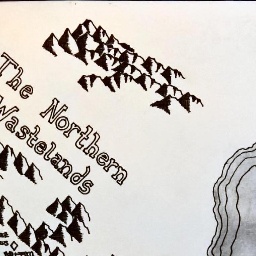 The Northern
Wastelands